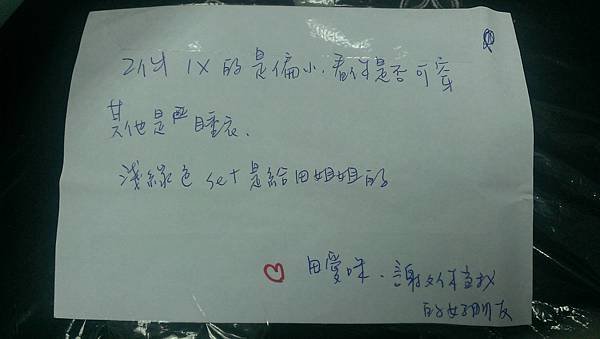 2件 1X 的是偏小,看你是否可穿
其他是 睡衣.
淺綠色 set 是給田姐姐的
愛 . 謝 我
的好朋友